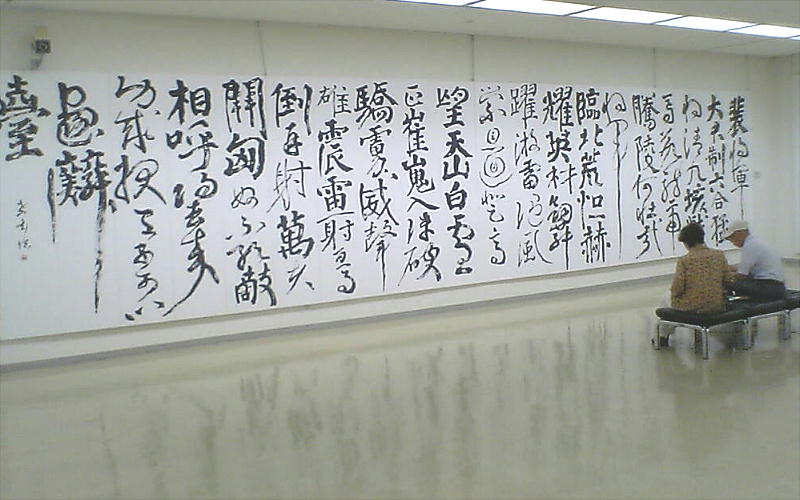 裴将軍
大君制六合猛
将清九垓戰
馬若龍虎
騰陵何壮哉
将軍
臨北荒恒赫
耀英材劔舞
躍游雷随風
縈且迴登高
望天山白雲
正崔嵬入陣破
驕虜威聲
雄震雷一射百馬
倒再射萬夫
開匈奴不敢敵
相呼歸去來
功成報天子可以
畫麟
臺